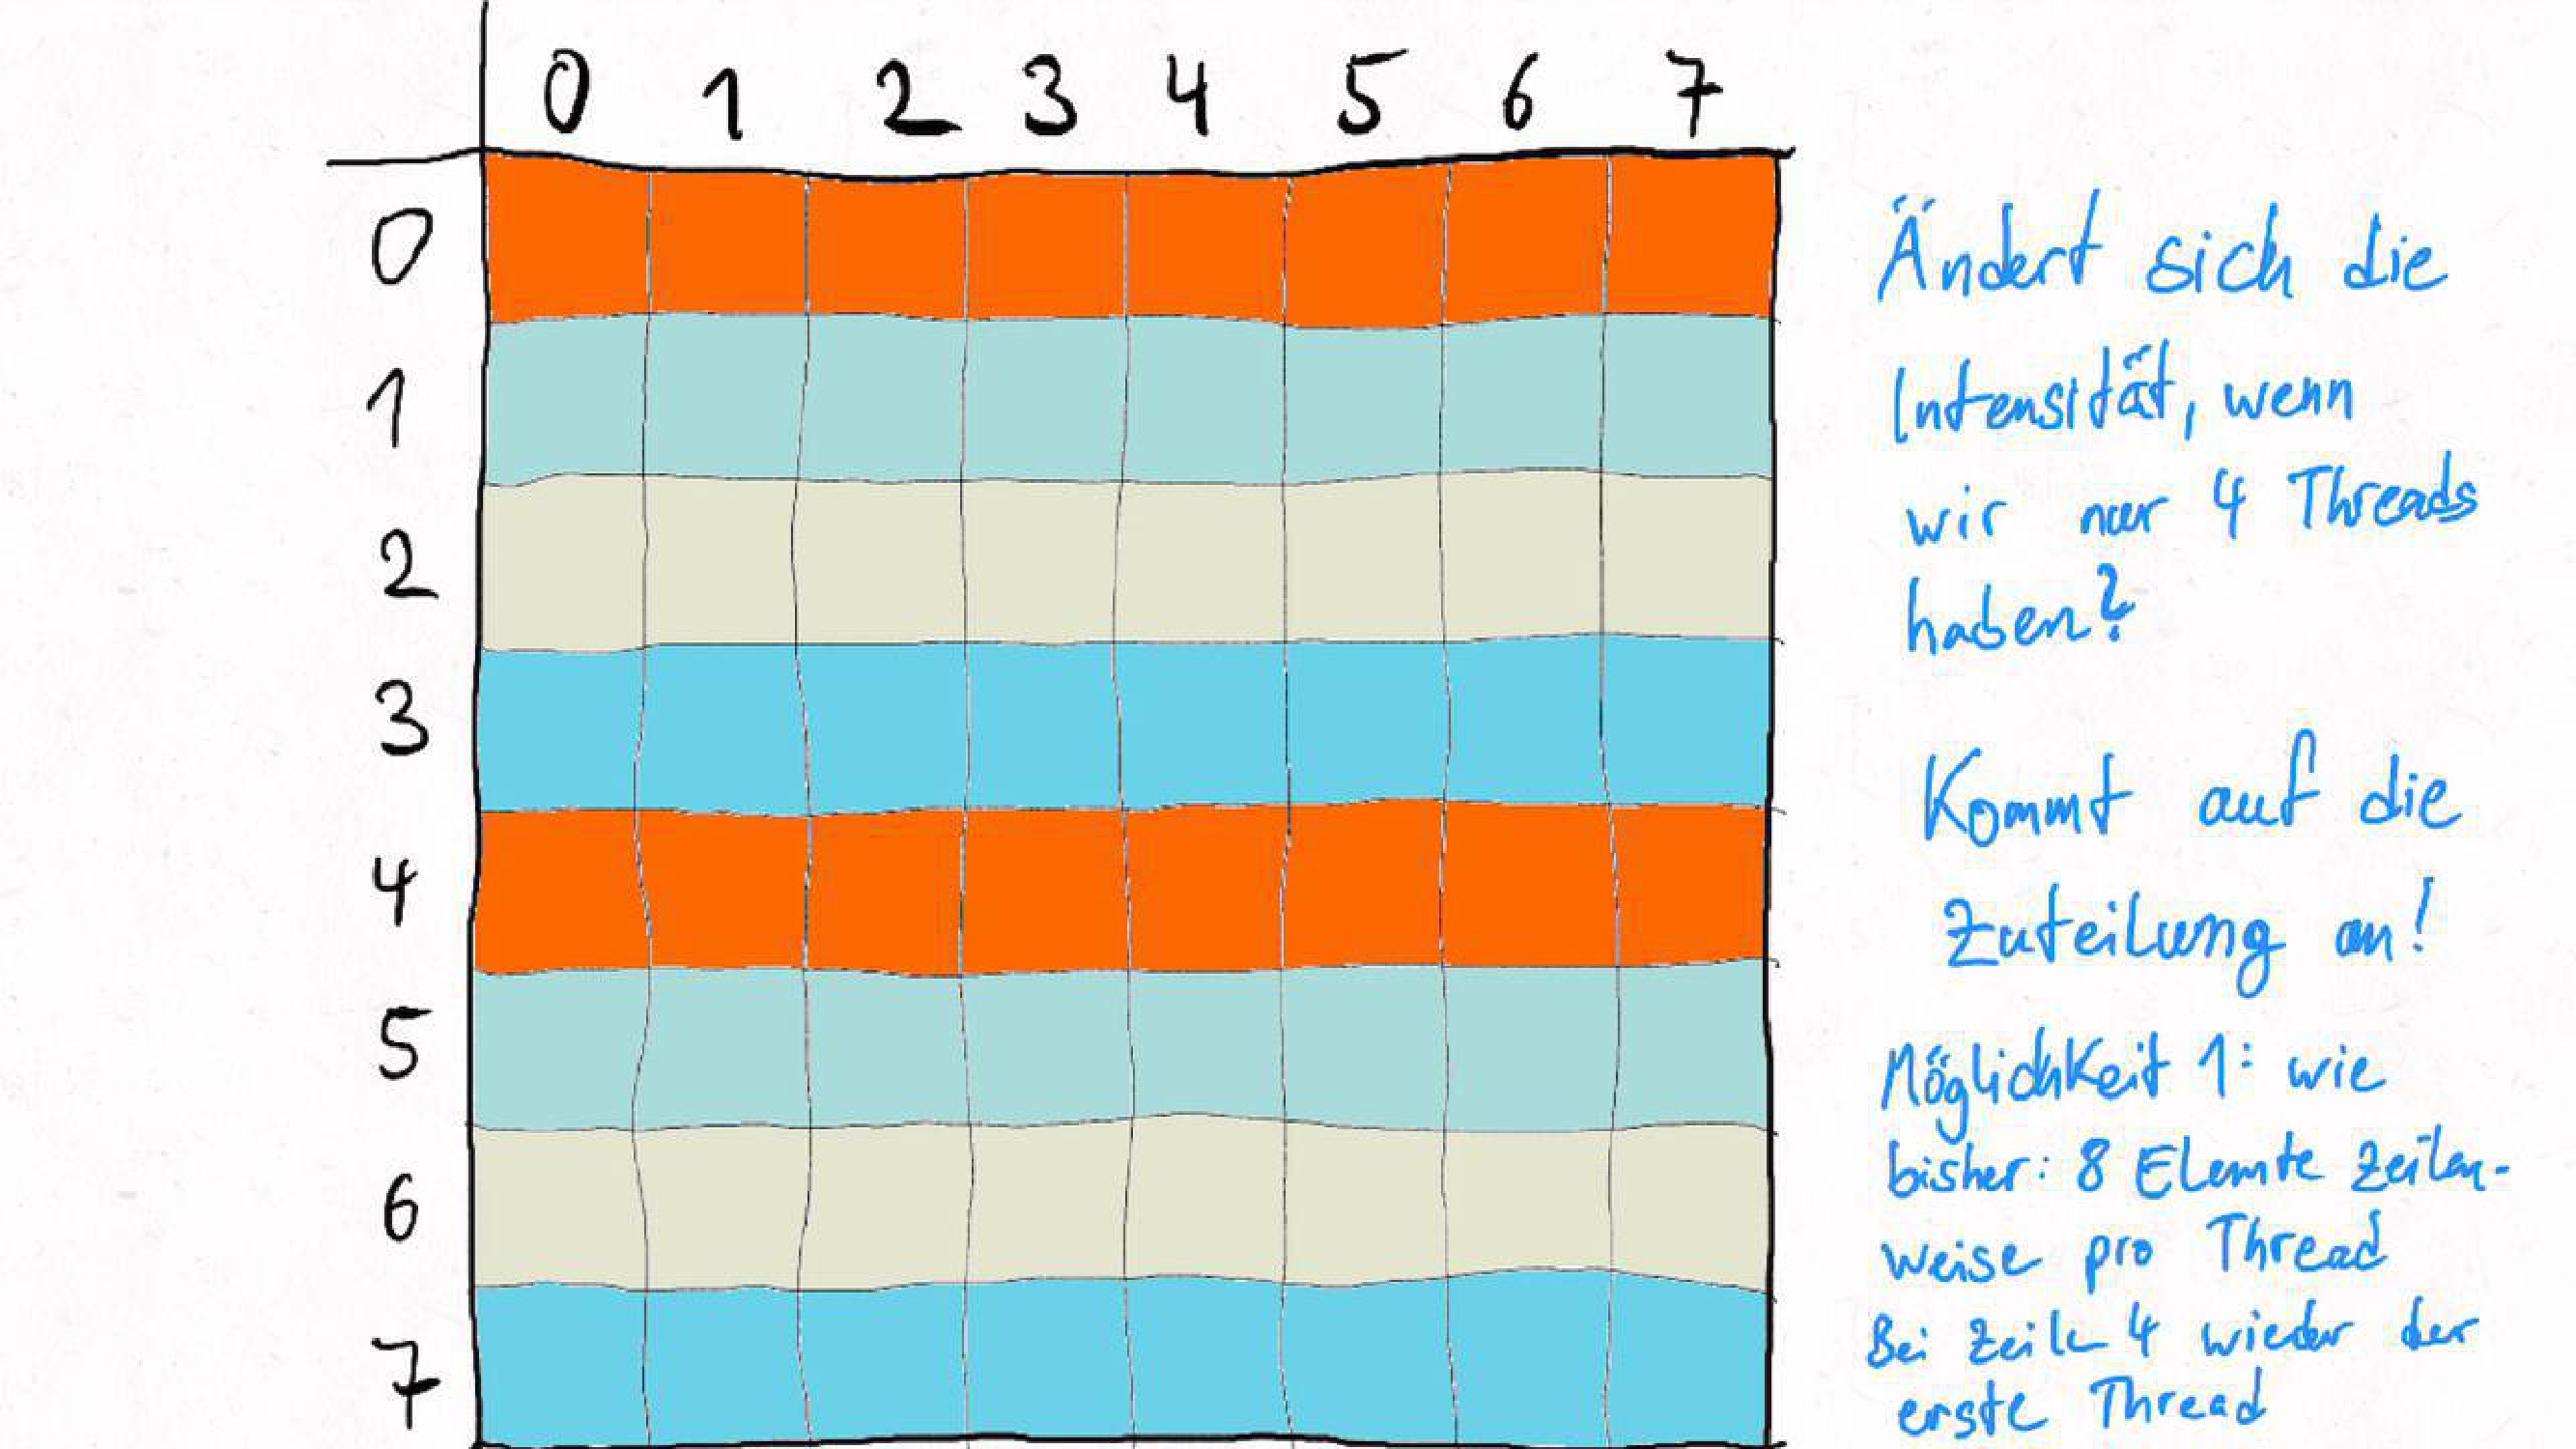 0 1 2 3 4 5 6 7
0
1
2
3
4
5
6
7
Ändert sich die
Intensität, wenn
wir nur 4 Threads
haben?
Kommt auf die
Zuteilung an!
Möglichkeit 1: wie
bisher: 8 Elemte zeilen-
weise pro Thread
Bei Zeile 4 wieder der
erste Thread